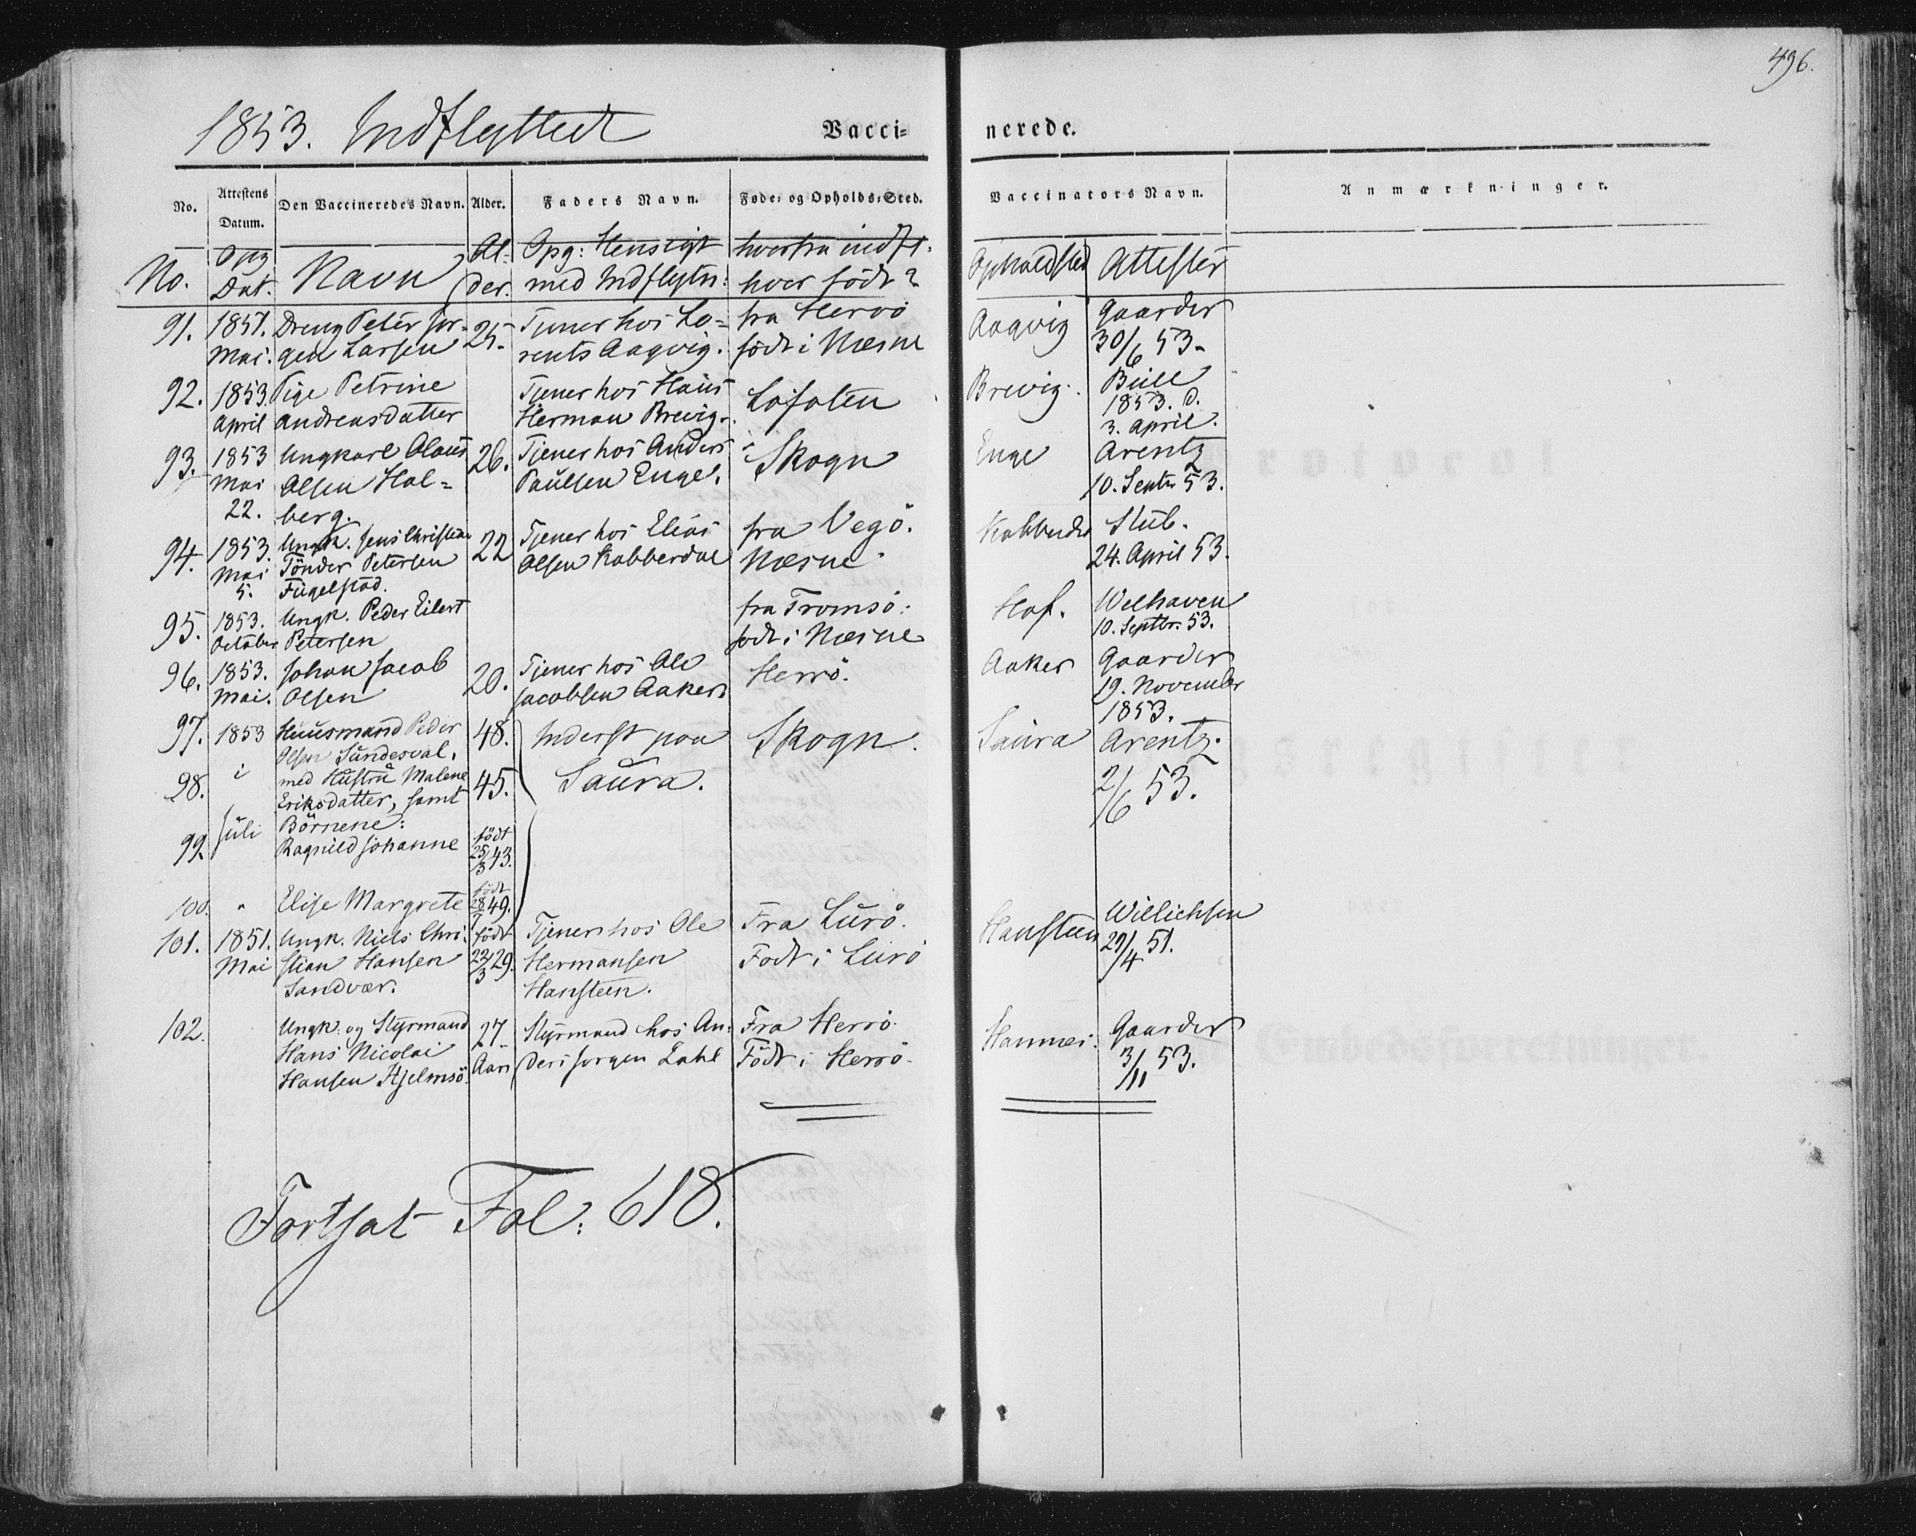 496.
1853. Indflyttede
Vacci=
nerede.
No. Attestens Datum. Den Vaccineredes Navn. Alder. Faders Navn. Føde= og Opholds=Sted. Vaccinators Navn. Anmærkninger.
No. Opg Dat. Navn Al= der. Opg: Hensigt med Indflytn: hvorfra indfl. hvor födt? Opholdsted Attester
91. 1851. Dreng Peter Jør= 25. Tjener hos Lo= fra Herrö Aaqvig Gaarder
Mai. gen Larsen rents Aaqvig. födt i Næsne 30/6 53.
92. 1853 Pige Petrine Tjener hos Hans Lofoten Brevig. Bull
April Andreasdatter Herman Brevig. 1853. d.
3. April.
93. 1853 Ungkarl Olaus 26. Tjener hos Anders Skogn Enge Arentz
Mai Olsen Hal= Paulsen Enge. 10. Septr 53.
22. berg.
94. 1853. Ungk. Jens Christian 22 Tjener hos Elias fra Vegö. Kobberdal Stub.
Mai Tönder Petersen Olsen Kobberdal Næsne 24. April 53.
5. Fügelstad.
95. 1853. Ungk. Peder Eilert fra Tromsö: Hof. Welhaven
October Petersen födt i Næsne 10. Septbr. 53.
96. 1853. Johan Jacob 20. Tjener hos Ole Herrö. Aaker Gaarder
Mai. Olsen Jacobsen Aaker 19. November
1853.
97. 1853 Huusmand Peder 48. Inderst paa Skogn. Saura Arentz.
Olsen Sundesval.
98. i med Hustru Malene 45. Saura. 2/6 53.
Eriksdatter, samt
Juli Börnene:
99. Ragnild Johanne födt 25/3 43.
100. " Elise Margrete födt 28/7 49.
101. 1851. Ungk. Niels Chri= födt Tjener hos Ole Fra Lurö. Hansteen Willichsen
Mai stian Hansen 22/3 29. Hermansen Födt i Lurö 29/4 51.
Sandvær. Hansteen.
102. Ungk. og Styrmand 27 Styrmand hos An= Fra Herrö Hamnes. Gaarder
Hans Nicolai Aar ders Jörgen Zahl Födt i Herrö 3/11 53.
Hansen Hjelmsö.
Fortsat Fol: 618.